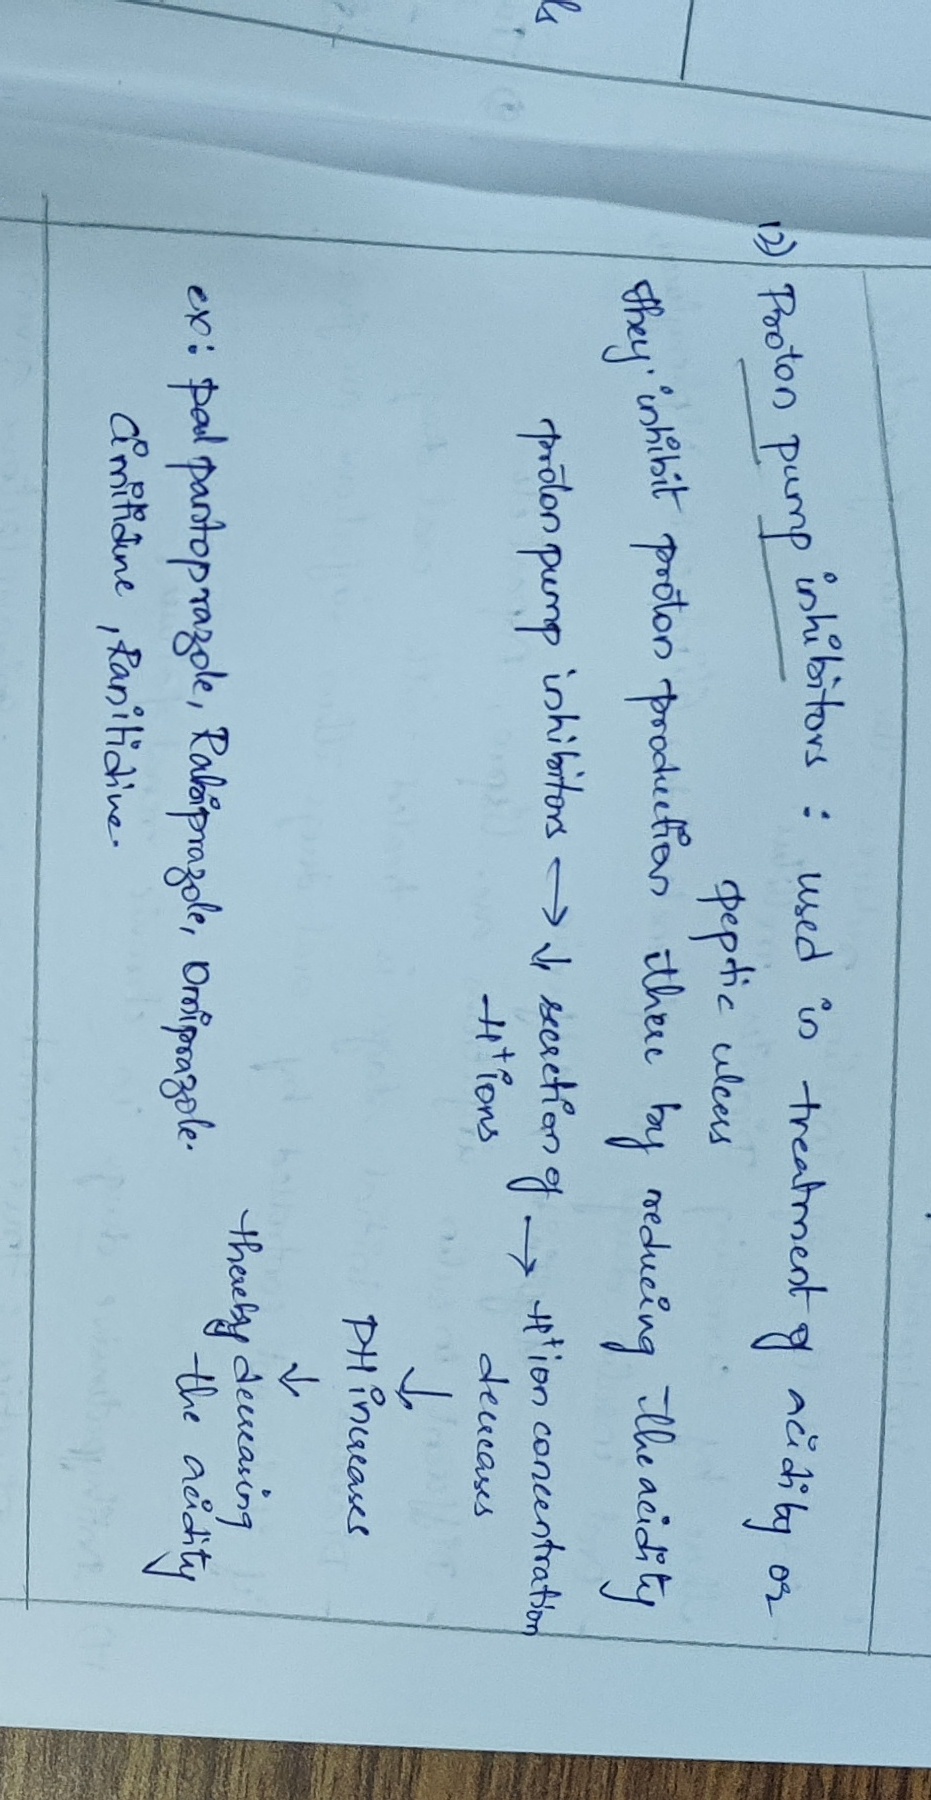 12) Proton pump inhibitors : used in treatment of acidity or
peptic ulcers
they inhibit proton production there by reducing the acidity
proton pump inhibitors → ↓ secretion of → H+ ion concentration
H+ ions decreases
↓
PH increases
↓
thereby decreasing
the acidity
ex: pal pantoprazole, Rabiprazole, omiprazole.
Cimitidine, Ranitidine.